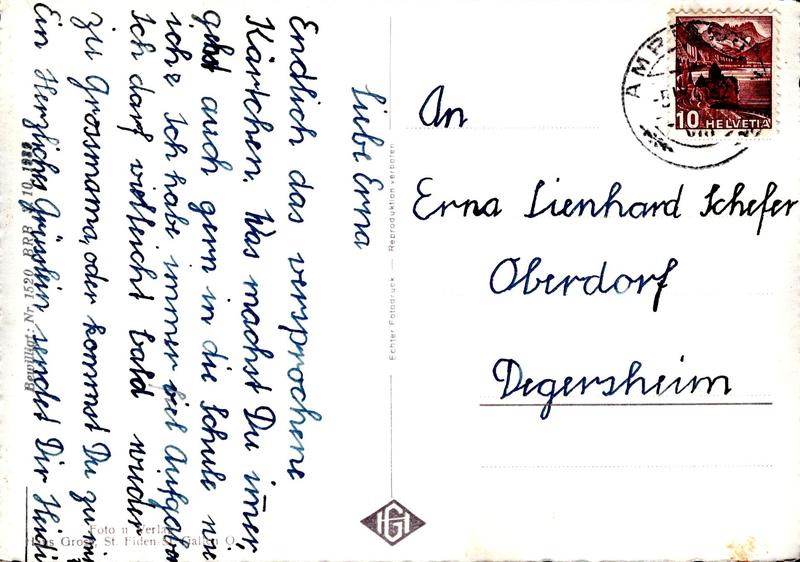 Liebe Erna
Endlich das versprochene
Kärtchen. Was machst Du im̄er,
gehst auch gern in die Schule wie
ich? Ich habe immer viel Aufgaben
Ich darf vielleicht bald wieder
zu Grossmama, oder kommst Du zu mir
Ein Herzliches Grüsslein sendet Dir Heidi
An
Erna Lienhard Schefer
Oberdorf
Degersheim
AMP
10 HELVETIA
Echter Fotodruck — Reproduktion verboten
Bewilligt: Nr. 1520 BRB 3. 10. 1939
Foto u. Verlag
Hans Gross, St. Fiden-St. Gallen O.
HG